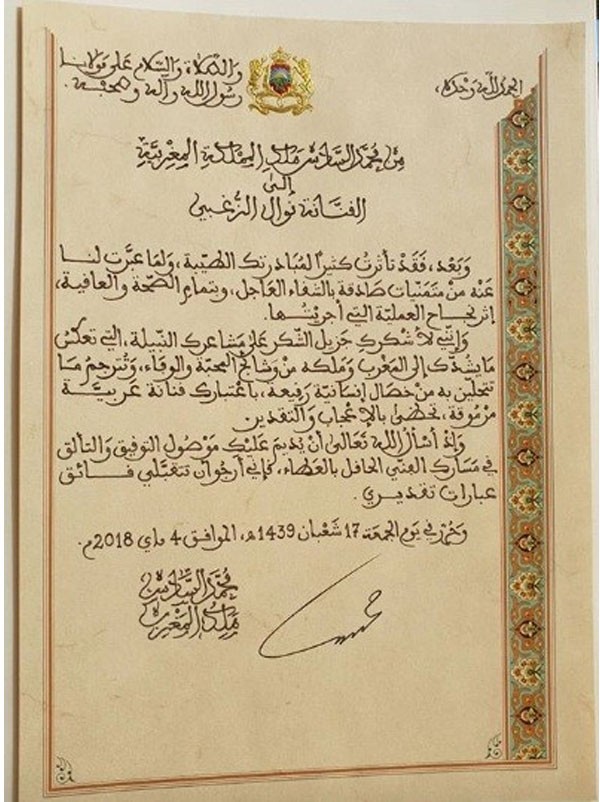 الحمد لله وحده،
والصلاة والسلام على مولانا
رسول الله وآله وصحبه.
من محمد السادس ملك المملكة المغربية
إلى
الفنانة نوال الزغبي
وبعد، فقد تأثرت كثيرا لمبادرتك الطيبة، ولما عبرت لنا
عنه من متمنيات صادقة بالشفاء العاجل، وبتمام الصحة والعافية،
إثر نجاح العملية التي أجريتها.
وإنني لأشكرك جزيل الشكر على مشاعرك النبيلة، التي تعكس
ما يشدك إلى المغرب وملكه من وشائج المحبة والوفاء، وتترجم ما
تتحلين به من خصال إنسانية رفيعة، باعتبارك فنانة عربية
مرموقة، تحظى بالإعجاب والتقدير.
وإذ أسأل الله تعالى أن يديم عليك موصول التوفيق والتألق
في مسارك الفني الحافل بالعطاء، فإني أرجو أن تتقبلي فائق
عبارات تقديري.
وحرر في يوم الجمعة 17 شعبان 1439ه، الموافق 4 ماي 2018م.
محمد السادس
ملك المغرب